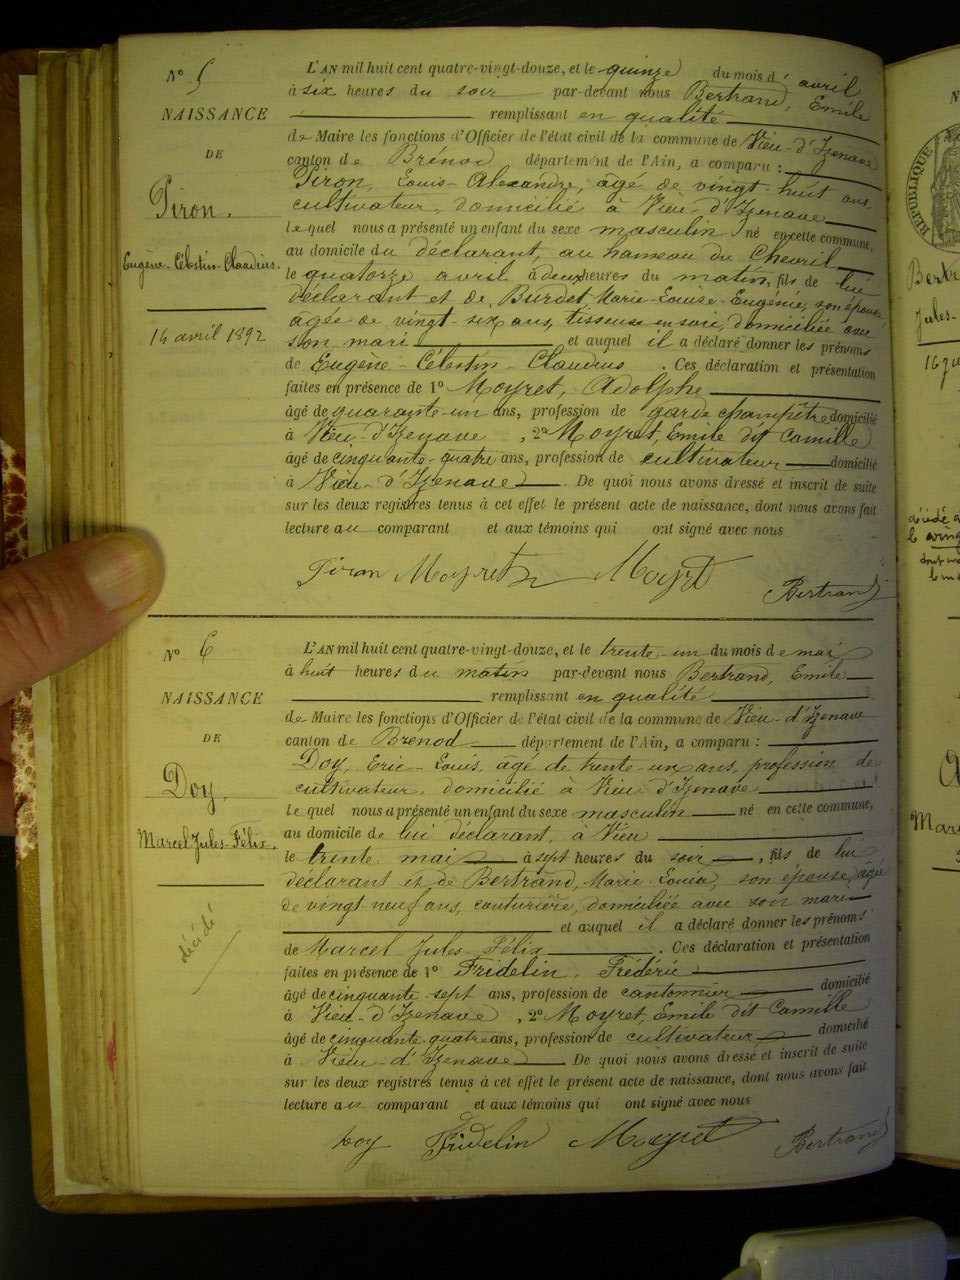 N° 5
NAISSANCE
DE
Piron.
Eugène-Célestin-Claudius.
14 avril 1892
L'AN mil huit cent quatre-vingt-douze, et le quinze du mois d' avril
à six heures du soir par-devant nous Bertrand, Emile
remplissant en qualité
de Maire les fonctions d'Officier de l'état civil de la commune de Vieu-d'Izenave
canton de Brénod département de l'Ain, a comparu :
Piron, Louis-Alexandre, âgé de vingt-huit ans,
cultivateur, domicilié à Vieu-d'Izenave
Lequel nous a présenté un enfant du sexe masculin né en cette commune,
au domicile du déclarant, au hameau du Chevril
le quatorze avril à deux heures du matin, fils de lui
déclarant et de Burdet Marie-Louise-Eugénie, son épouse,
agée de vingt-six ans, tisseuse en soie, domiciliée avec
son mari et auquel il a déclaré donner les prénoms
de Eugène-Célestin-Claudius. Ces déclaration et présentation
faites en présence de 1° Moyret, Adolphe
âgé de quarante-un ans, profession de garde champêtre domicilié
à Vieu-d'Izenave, 2° Moyret, Emile dit Camille
âgé de cinquante-quatre ans, profession de cultivateur domicilié
à Vieu-d'Izenave. De quoi nous avons dressé et inscrit de suite
sur les deux registres tenus à cet effet le présent acte de naissance, dont nous avons fait
lecture au comparant et aux témoins qui ont signé avec nous
Piron Moyret Moyret Bertrand
N° 6
NAISSANCE
DE
Doy,
Marcel Jules-Félix.
décédé
L'AN mil huit cent quatre-vingt-douze, et le trente-un du mois de mai
à huit heures du matin par-devant nous Bertrand, Emile
remplissant en qualité
de Maire les fonctions d'Officier de l'état civil de la commune de Vieu-d'Izenave
canton de Brenod département de l'Ain, a comparu :
Doy, Eric-Louis, agé de trente-un ans, profession de
cultivateur, domicilié à Vieu d'Izenave
Lequel nous a présenté un enfant du sexe masculin né en cette commune,
au domicile de lui déclarant, à Vieu
le trente mai à sept heures du soir, fils de lui
déclarant et de Bertrand, Marie-Louise, son épouse, agée
de vingt neuf ans, couturière, domiciliée avec son mari
et auquel il a déclaré donner les prénoms
de Marcel Jules-Félix. Ces déclaration et présentation
faites en présence de 1° Fridelin, Frédéric
âgé de cinquante-sept ans, profession de cantonnier domicilié
à Vieu-d'Izenave, 2° Moyret Emile dit Camille
âgé de cinquante-quatre ans, profession de cultivateur domicilié
à Vieu-d'Izenave. De quoi nous avons dressé et inscrit de suite
sur les deux registres tenus à cet effet le présent acte de naissance, dont nous avons fait
lecture au comparant et aux témoins qui ont signé avec nous
Doy Fridelin Moyret Bertrand
RÉPUBLIQUE
Jules-